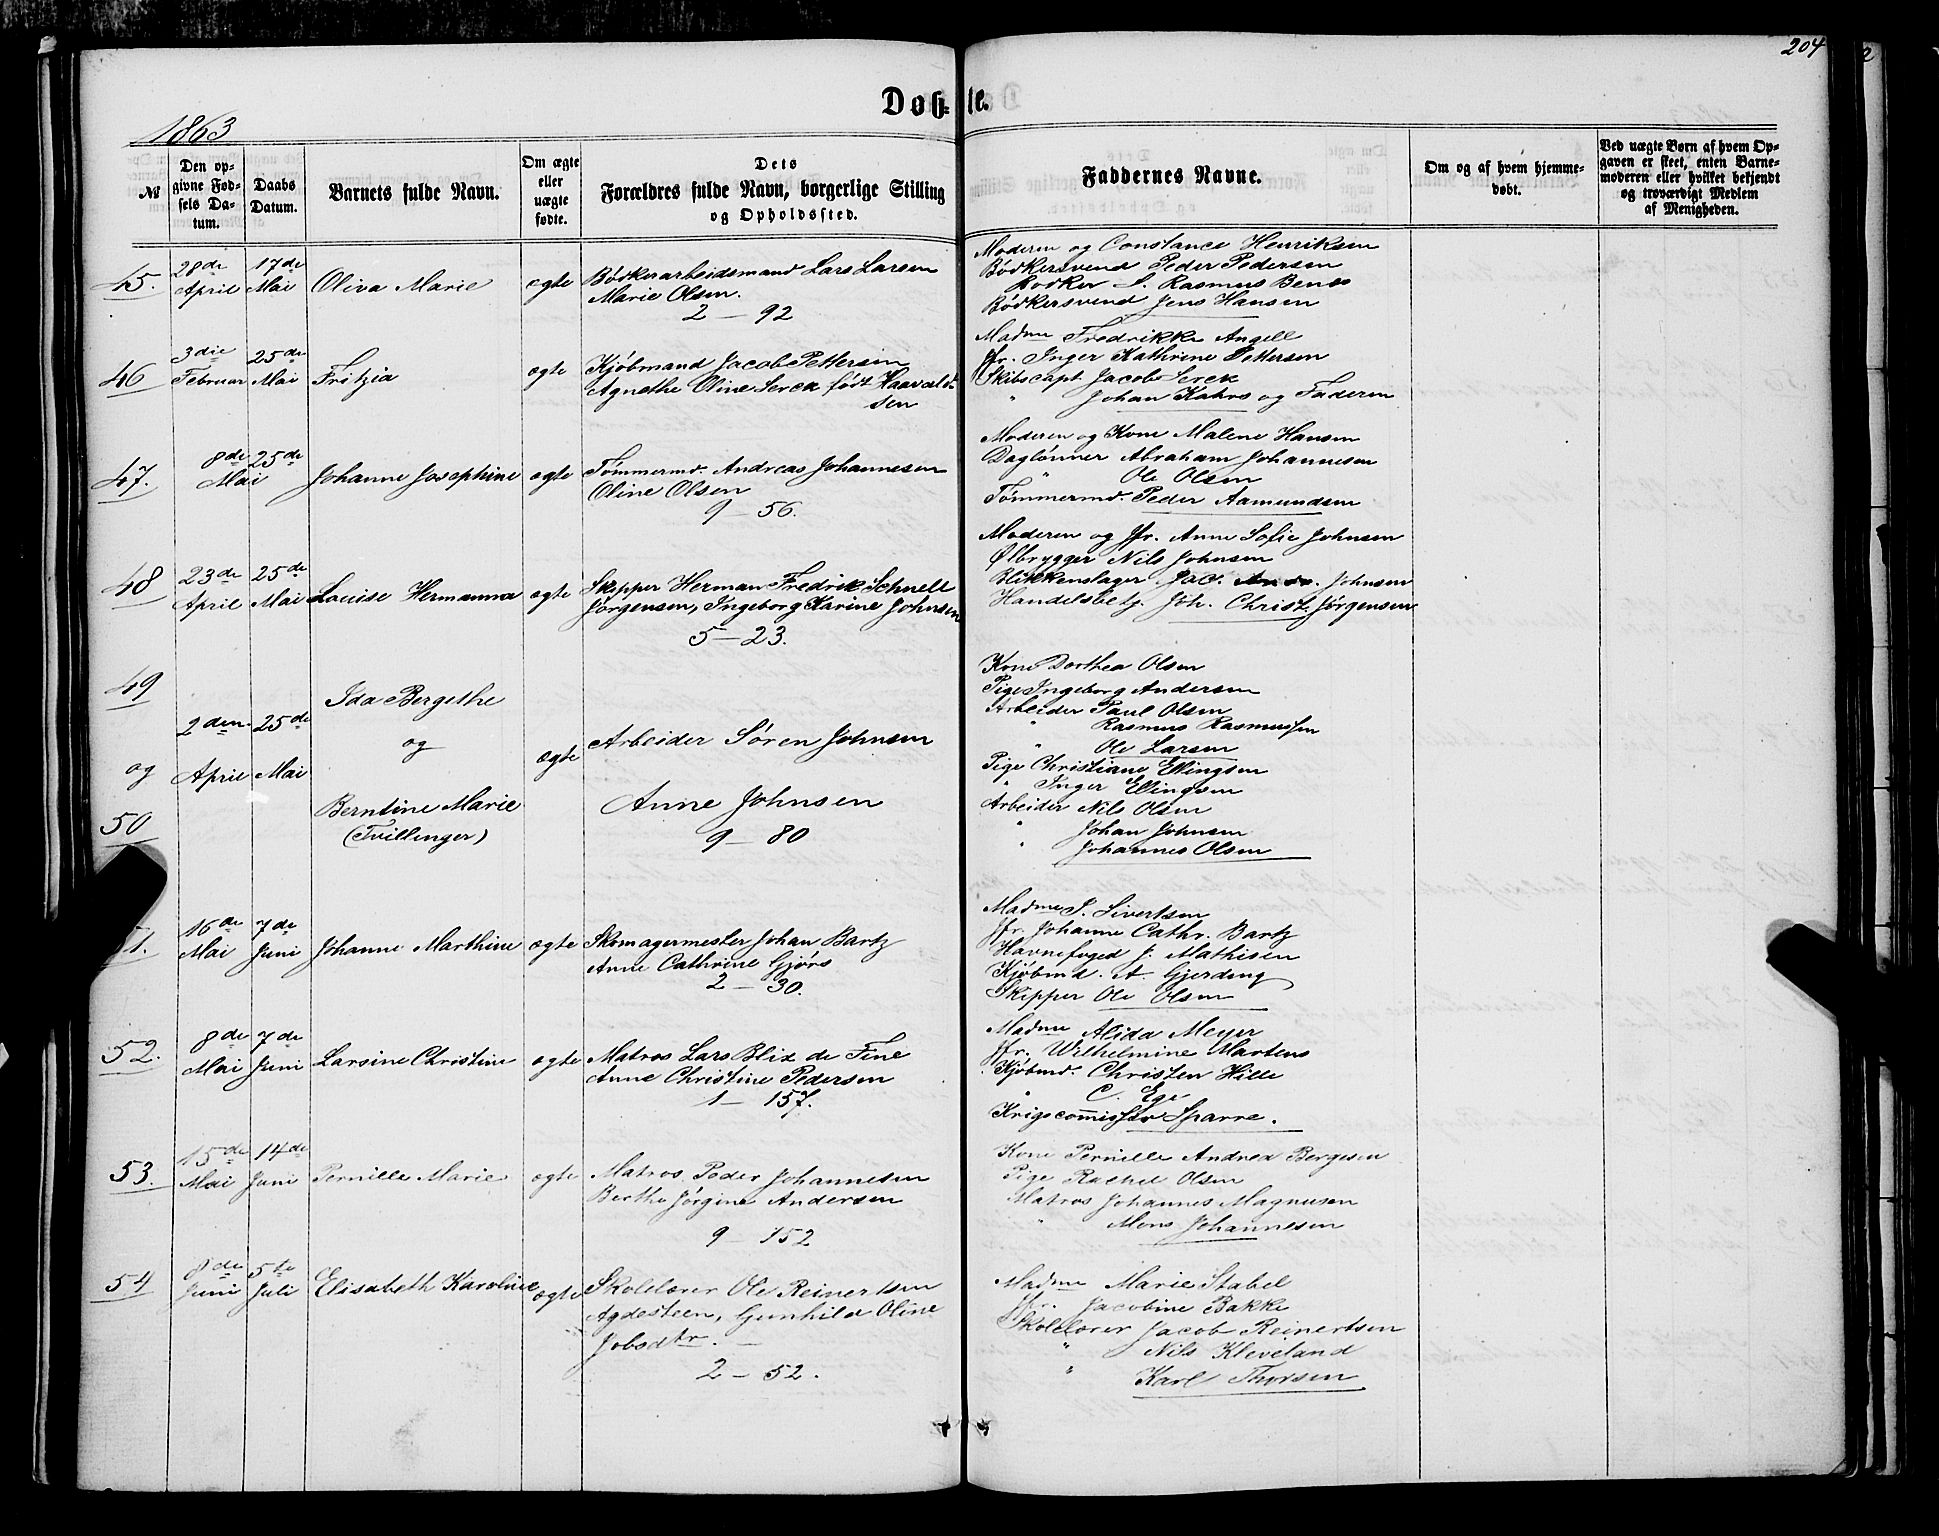 204
Døbte.
1863
№
Den opgivne Fødsels Datum.
Daabs Datum.
Barnets fulde Navn.
Om ægte eller uægte fødte.
Dets
Forældres fulde Navn, borgerlige Stilling
og Opholdssted.
Faddernes Navne.
Om og af hvem hjemmedøbt.
Ved uægte Børn af hvem Opgaven er skeet, enten Barnemoderen eller hvilket bekjendt og troværdigt Medlem af Menigheden.
45. 28de April 17de Mai Oliva Marie ægte
Bødkerarbeidsmand Lars Larsen
Marie Olsen.
2 – 92
Moderen og Constance Henriksen
Bødkersvend Peder Pedersen
Bødker L. Rasmus Bens
Bødkersvend Jens Hansen
46 3die Februar 25de Mai Fritzia ægte
Kjøbmand Jacob Pettersen
Agnethe Oline Serck født Haavaldsen
Madme Fredrikke Angell
Jfr. Inger Kathrine Pettersen
Skibscapt Jacob Serck
" Johan Kahrs og Faderen
47. 8de Mai 25de Johanne Josephine ægte
Tømmermd. Andreas Johannesen
Oline Olsen
9 – 56.
Moderen og Kone Malene Hansen
Daglønner Abraham Johannesen
" Ole Olsen
Tømmermd. Peder Aamundsen
48 23de April 25de Mai Louise Hermanna ægte
Skipper Herman Fredrik Schnell
Jørgensen, Ingeborg Karine Johnsen
5 – 23.
Moderen og Jfr. Anne Sofie Johnsen
Ølbrygger Nils Johnsen
Blikkenslager Jac. Johnsen
Handelsbetj. Joh. Christ. Jørgensen
49 og 50 2den April 25de Mai
Ida Bergethe
og
Berntine Marie
(Tvillinger)
ægte
Arbeider Søren Johnsen
Anne Johnsen
9 – 80
Kone Dorthea Olsen
Pige Ingeborg Andersen
Arbeider Paul Olsen
" Rasmus Rasmussen
" Ole Larsen
Pige Christiane Ellingsen
" Inger Ellingsen
Arbeider Nils Olsen
" Johan Johnsen
" Johannes Olsen
1. 16de Mai 7de Juni Johanne Marthine ægte
Skomagermester Johan Bartz
Anne Cathrine Gjørs
2 – 30.
Madme S. Sivertsen
Jfr. Johanne Cathr. Bartz
Havnefoged J. Mathisen
Kjøbmd. A. Gjerding
Skipper Ole Olsen
52. 8de Mai 7de Juni Larsine Christine ægte
Matros Lars Blix de Fine
Anne Christine Pedersen
1 – 157.
Madme Alida Meyer
Jfr. Wilhelmine Martens
Kjøbmd. Christen Hille
" C. Ege
Krigscommissær Sparre.
53. 15de Mai 14de Juni Pernille Marie ægte
Matros Peder Johannesen
Berthe Jørgine Andersen
9 – 152
Kone Pernille Andrea Bergesen
Pige Rachel Olsen
Matros Johannes Magnusen
" Mons Johannesen
54 8de Juni 5te Juli Elisabeth Karoline ægte
Skolelærer Ole Reinertsen
Agdesteen, Gunhild Oline
Jobsdtr. –
2 – 52.
Madme Marie Stabel
Jfr. Jacobine Bakke
Skolelærer Jacob Reinertsen
" Nils Kleveland
" Karl Thorsen